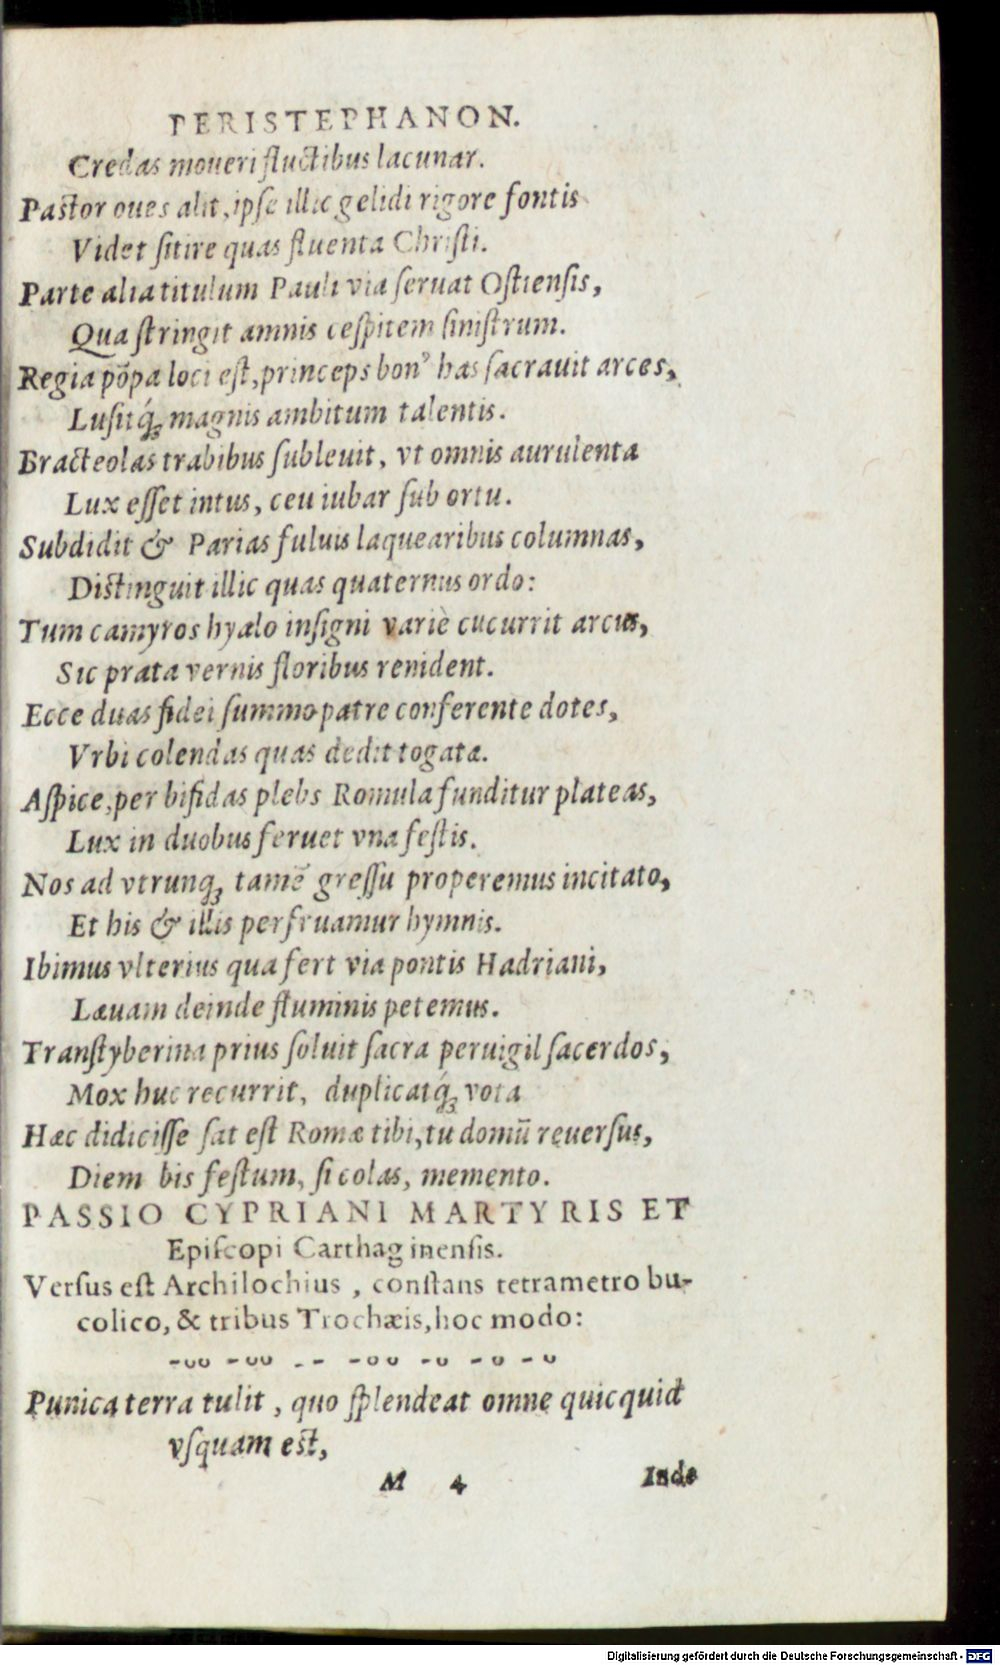 PERISTEPHANON.
Credas moueri fluctibus lacunar.
Pastor oues alit, ipse illic gelidi rigore fontis
Videt sitire quas fluenta Christi.
Parte alia titulum Pauli via seruat Ostiensis,
Qua stringit amnis cespitem sinistrum.
Regia põpa loci est, princeps bonꝰ has sacrauit arces,
Lusitq́ꝫ magnis ambitum talentis.
Bracteolas trabibus subleuit, vt omnis aurulenta
Lux esset intus, ceu iubar sub ortu.
Subdidit & Parias fuluis laquearibus columnas,
Distinguit illic quas quaternus ordo:
Tum camyros hyalo insigni variè cucurrit arcus,
Sic prata vernis floribus renident.
Ecce duas fidei summo patre conferente dotes,
Vrbi colendas quas dedit togatæ.
Aspice, per bifidas plebs Romula funditur plateas,
Lux in duobus feruet vna festis.
Nos ad vtrunqꝫ tamẽ gressu properemus incitato,
Et his & illis perfruamur hymnis.
Ibimus vlterius qua fert via pontis Hadriani,
Læuam deinde fluminis petemus.
Transtyberina prius soluit sacra peruigil sacerdos,
Mox huc recurrit, duplicatq́ꝫ vota
Hæc didicisse sat est Romæ tibi, tu domũ reuersus,
Diem bis festum, si colas, memento.
PASSIO CYPRIANI MARTYRIS ET
Episcopi Carthaginensis.
Versus est Archilochius, constans tetrametro bu-
colico, & tribus Trochæis, hoc modo:
-υυ -υυ -- -υυ -υ -υ -υ
Punica terra tulit, quo splendeat omne quicquid
vsquam est,
M 4 Inde
Digitalisierung gefördert durch die Deutsche Forschungsgemeinschaft - DFG